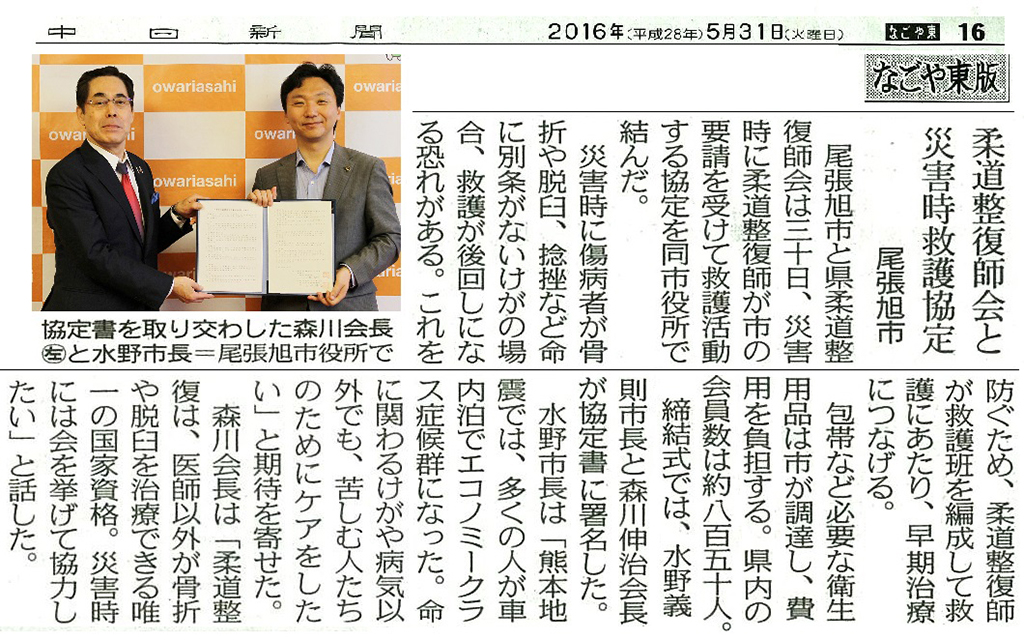 中日新聞
2016年(平成28年)5月31日(火曜日)
なごや東 16
なごや東版
柔道整復師会と
災害時救護協定
尾張旭市
尾張旭市と県柔道整
復師会は三十日、災害
時に柔道整復師が市の
要請を受けて救護活動
する協定を同市役所で
結んだ。
災害時に傷病者が骨
折や脱臼、捻挫など命
に別条がないけがの場
合、救護が後回しにな
る恐れがある。これを
owariasahi
owariasahi
owariasahi
協定書を取り交わした森川会長
㊧と水野市長=尾張旭市役所で
防ぐため、柔道整復師
が救護班を編成して救
護にあたり、早期治療
につなげる。
包帯など必要な衛生
用品は市が調達し、費
用を負担する。県内の
会員数は約八百五十人。
締結式では、水野義
則市長と森川伸治会長
が協定書に署名した。
水野市長は「熊本地
震では、多くの人が車
内泊でエコノミークラ
ス症候群になった。命
に関わるけがや病気以
外でも、苦しむ人たち
のためにケアをした
い」と期待を寄せた。
森川会長は「柔道整
復は、医師以外が骨折
や脱臼を治療できる唯
一の国家資格。災害時
には会を挙げて協力し
たい」と話した。